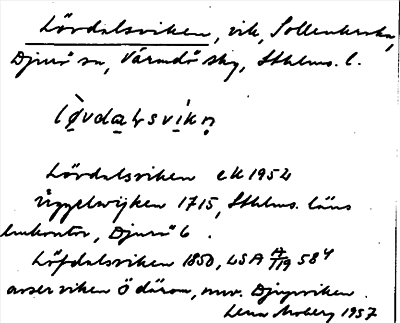 Lövdalsviken, vik, Sollenkroka,
Djurö sn, Värmdö skg, Sthlms. l.
Lövdalsviken ek 1954
Uggelwijken 1715, Sthlms. läns
lantkontor, Djurö 6.
Löfdalsviken 1850, LSA
avser viken Ö därom, nuv. Djupviken.
Lena Moberg 1957